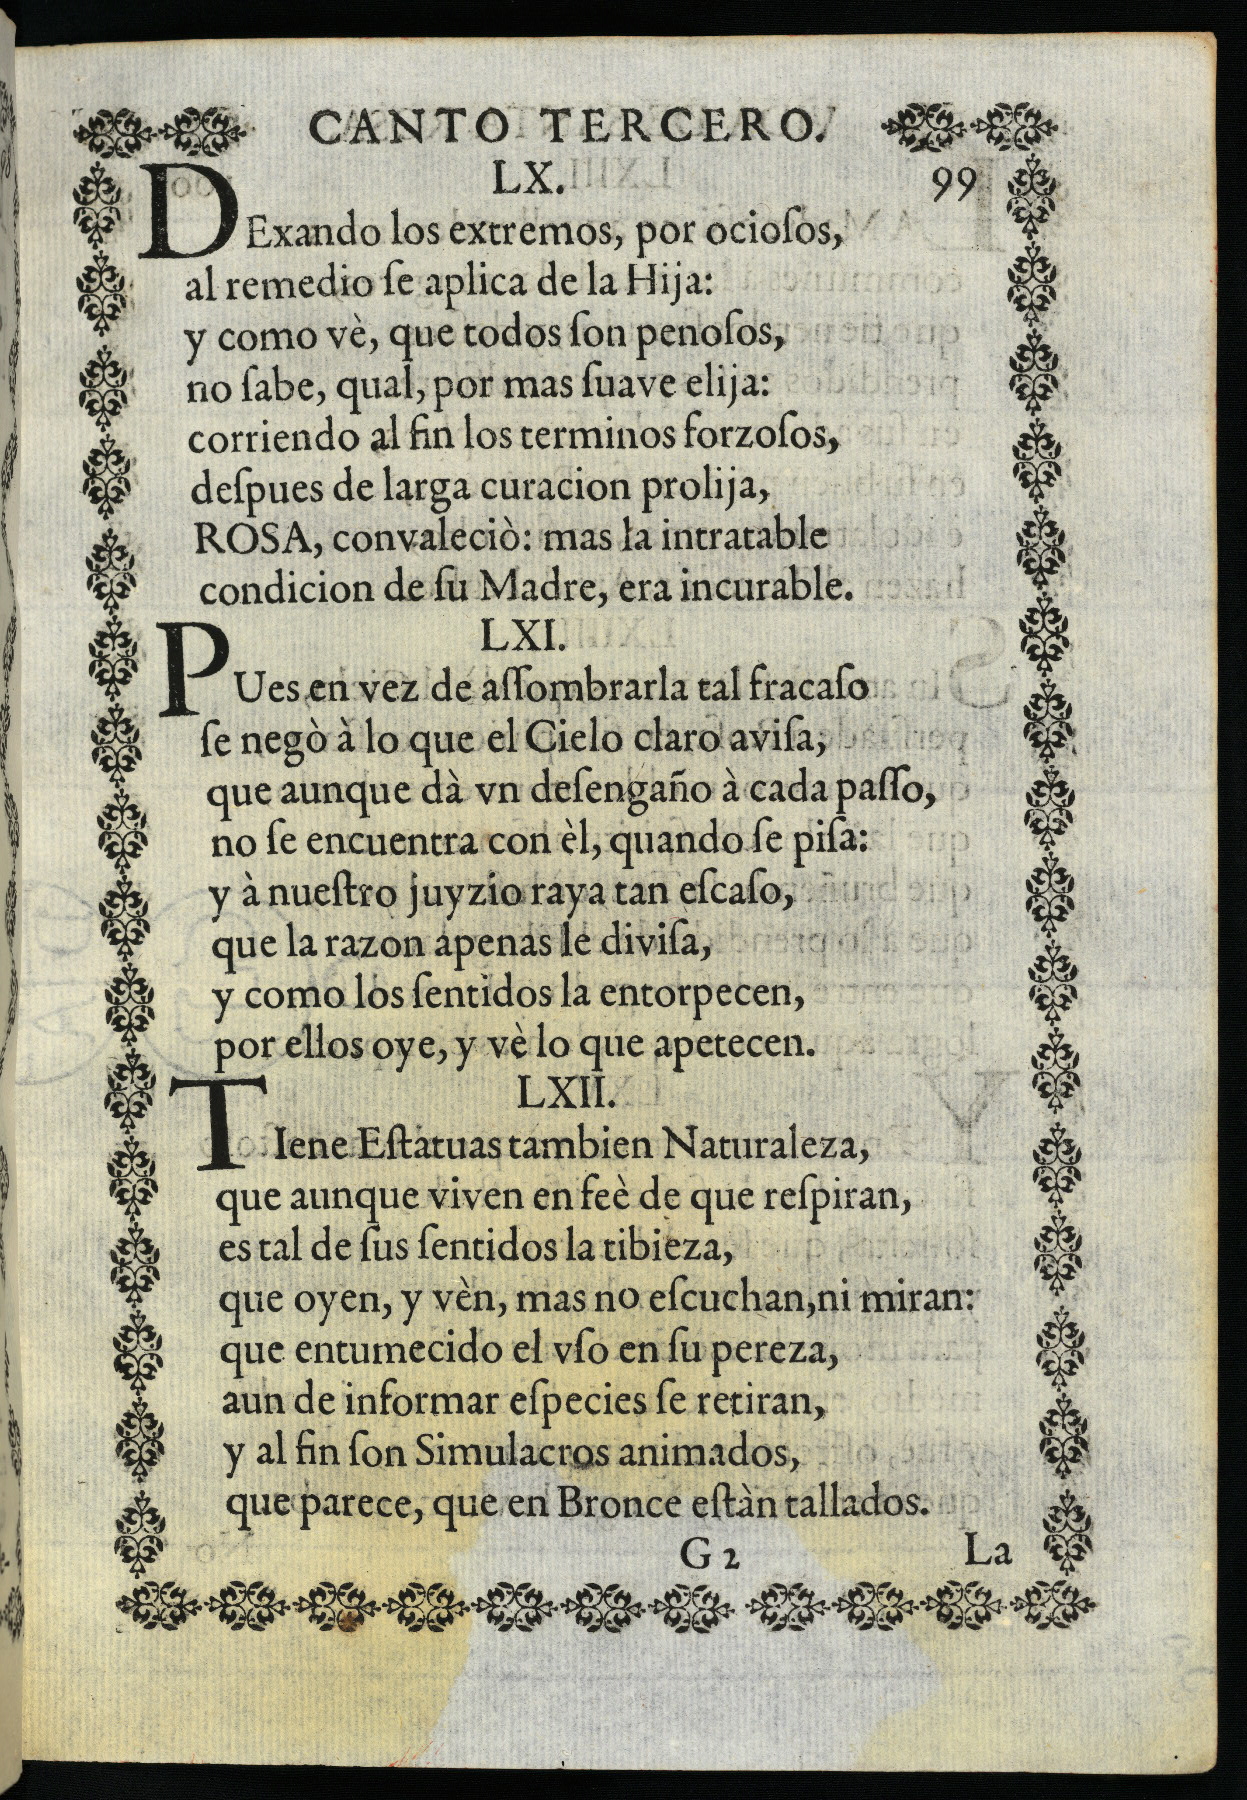 CANTO TERCERO.
LX. 99
DExando los extremos, por ocioſos,
al remedio ſe aplica de la Hija:
y como vè, que todos ſon penoſos,
no ſabe, qual, por mas ſuave elija:
corriendo al fin los terminos forzoſos,
deſpues de larga curacion prolija,
ROSA, convaleciò: mas la intratable
condicion de ſu Madre, era incurable.
LXI.
PUes en vez de aſſombrarla tal fracaſo
ſe negò à lo que el Cielo claro aviſa,
que aunque dà vn deſengaño à cada paſſo,
no ſe encuentra con èl, quando ſe piſa:
y à nueſtro juyzio raya tan eſcaſo,
que la razon apenas le diviſa,
y como los ſentidos la entorpecen,
por ellos oye, y vè lo que apetecen.
LXII.
TIene Eſtatuas tambien Naturaleza,
que aunque viven en feè de que reſpiran,
es tal de ſus ſentidos la tibieza,
que oyen, y vèn, mas no eſcuchan,ni miran:
que entumecido el vſo en ſu pereza,
aun de informar eſpecies ſe retiran,
y al fin ſon Simulacros animados,
que parece, que en Bronce eſtàn tallados.
G 2 La